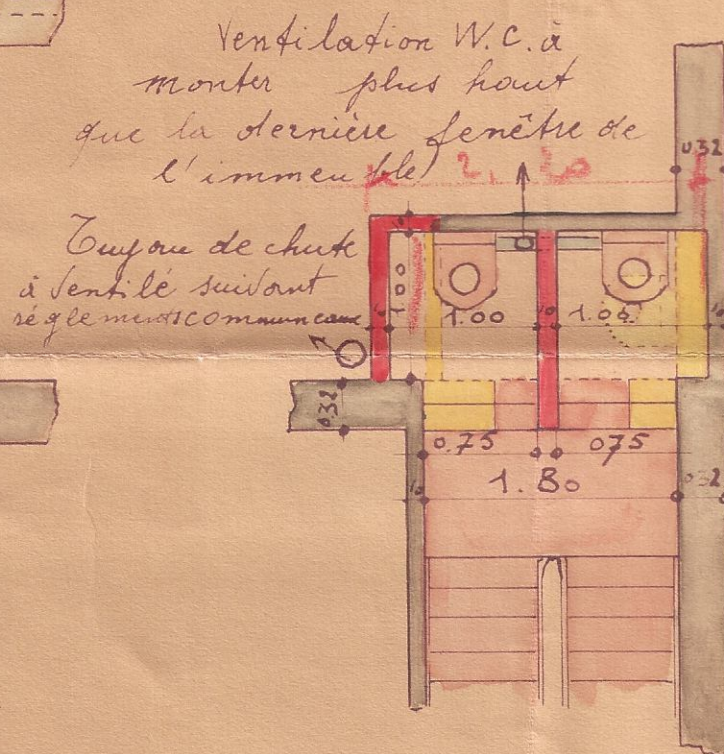 Ventilation W.C. à
monter plus haut
que la dernière fenêtre de
l'immeuble
2,20
0.32
Tuyau de chute
à ventilé suivant
réglements communeaux
1.00
1.00
1.00
0.32
0.75
075
1.80
032